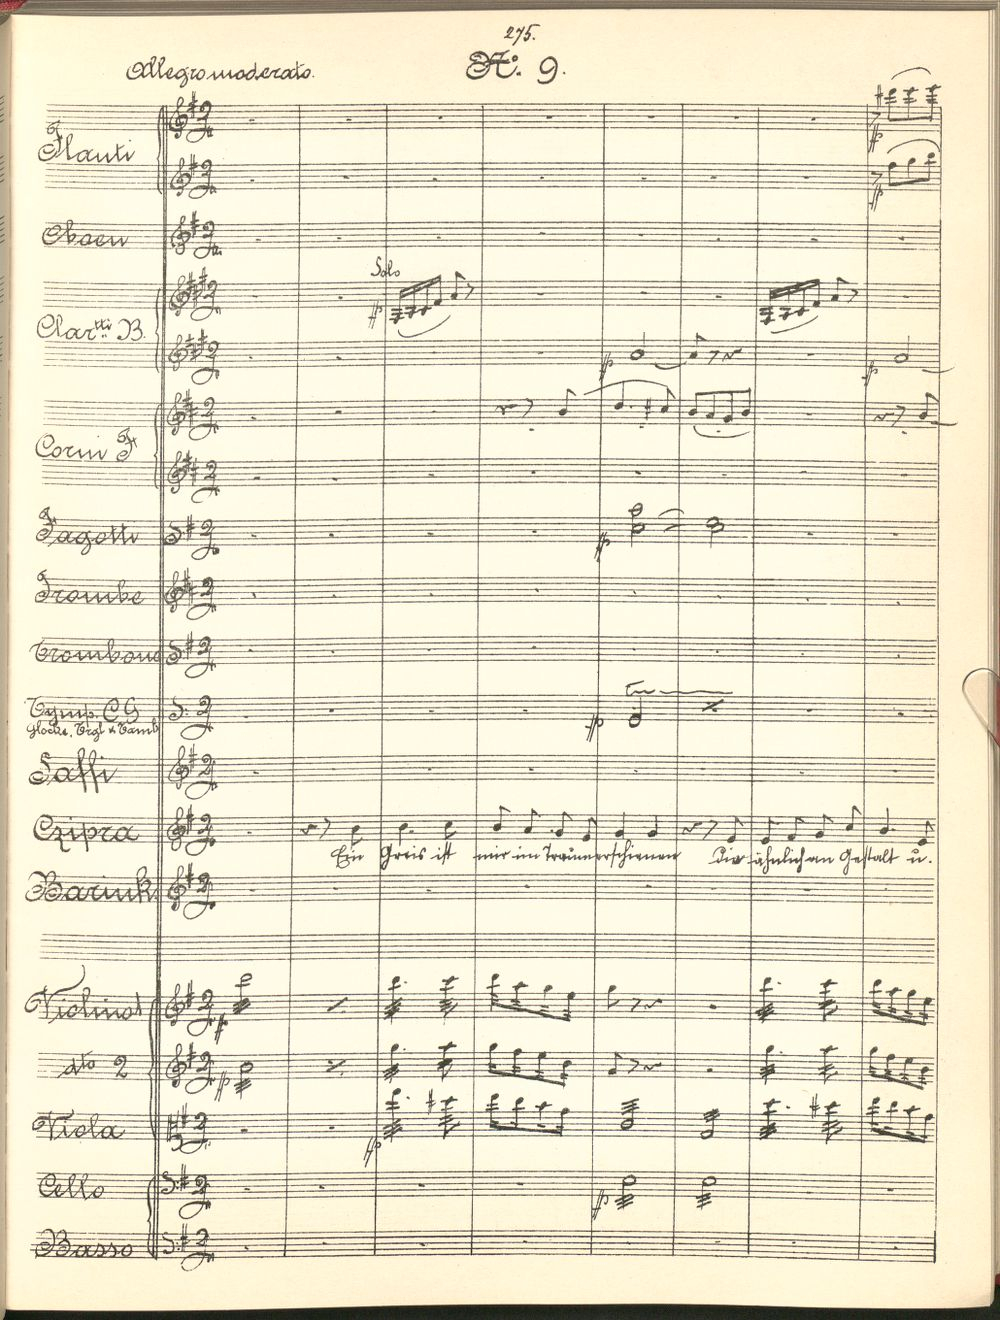 275.
Allegro moderato.
No. 9.
Flauti
Oboen
Solo
Clartti B.
Corni F
Fagotti
Trombe
Trombone
Tymp. C G
Glocke, Trgl & Tamb
Saffi
Czipra
Ein Greis ist mir im Traume erschienen Dir ähnlich an Gestalt u.
Barink.
Violino 1
dto 2
Viola
Cello
Basso